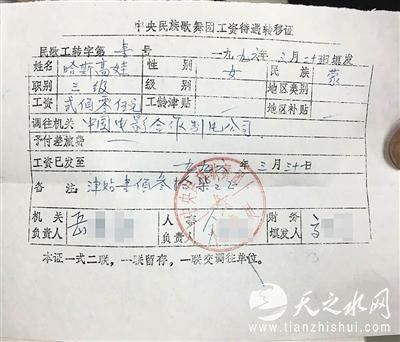 中央民族歌舞团工资待遇转移证
民歌工转字第 号 一九九六年三月三十日填发
姓名 哈斯高娃 性别 女 民族 蒙
职别 三级 级别 地区类别
工资 贰佰零伍元 工龄津贴 地区补贴
调往机关 中国电影合作制片公司
予付差旅费
工资已发至 一九九六年三月三十日
备注: 津贴壹佰叁拾柒元
机关负责人 岳 人事负责人 财务填发人
本证一式二联,一联留存,一联交调往单位。
天之水网
www.tianzhishui.com